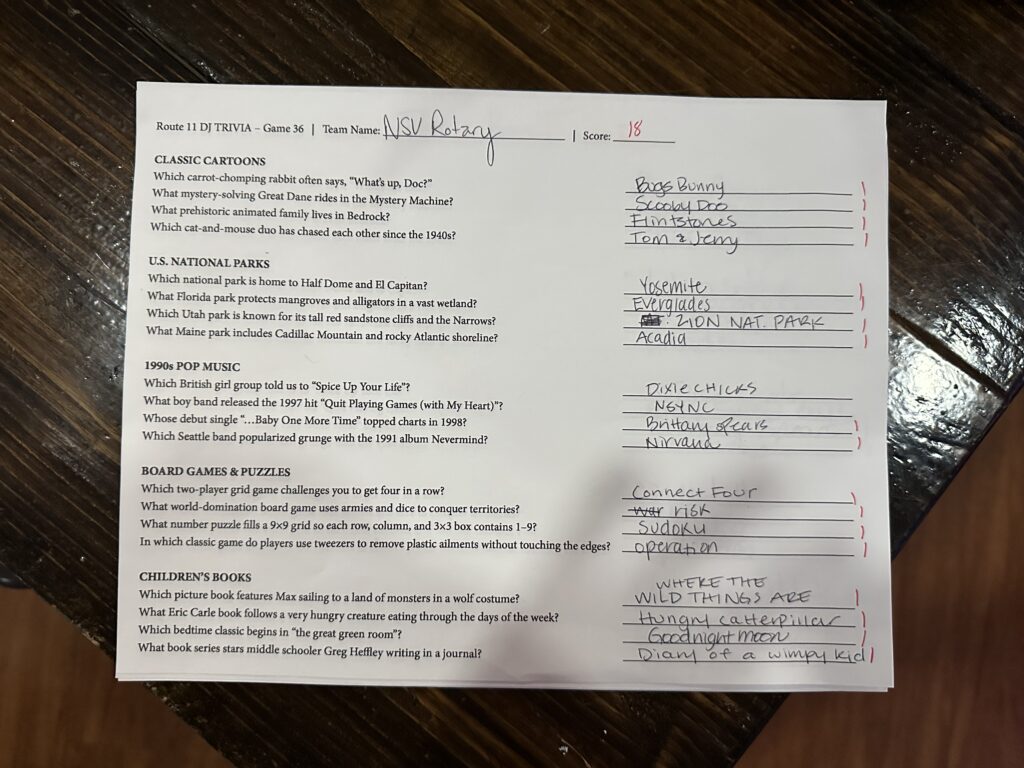 Route 11 DJ TRIVIA – Game 36 | Team Name: NSV Rotary | Score: 18
CLASSIC CARTOONS
Which carrot-chomping rabbit often says, “What’s up, Doc?” Bugs Bunny 1
What mystery-solving Great Dane rides in the Mystery Machine? Scooby Doo 1
What prehistoric animated family lives in Bedrock? Flintstones 1
Which cat-and-mouse duo has chased each other since the 1940s? Tom & Jerry 1
U.S. NATIONAL PARKS
Which national park is home to Half Dome and El Capitan? Yosemite 1
What Florida park protects mangroves and alligators in a vast wetland? Everglades 1
Which Utah park is known for its tall red sandstone cliffs and the Narrows? : ZION NAT. PARK 1
What Maine park includes Cadillac Mountain and rocky Atlantic shoreline? Acadia 1
1990s POP MUSIC
Which British girl group told us to “Spice Up Your Life”? DIXIE CHICKS
What boy band released the 1997 hit “Quit Playing Games (with My Heart)”? NSYNC
Whose debut single “…Baby One More Time” topped charts in 1998? Brittany Spears 1
Which Seattle band popularized grunge with the 1991 album Nevermind? Nirvana 1
BOARD GAMES & PUZZLES
Which two-player grid game challenges you to get four in a row? Connect Four 1
What world-domination board game uses armies and dice to conquer territories? war risk 1
What number puzzle fills a 9×9 grid so each row, column, and 3×3 box contains 1–9? Sudoku 1
In which classic game do players use tweezers to remove plastic ailments without touching the edges? operation 1
CHILDREN’S BOOKS
WHERE THE
Which picture book features Max sailing to a land of monsters in a wolf costume? WILD THINGS ARE 1
What Eric Carle book follows a very hungry creature eating through the days of the week? Hungry catterpillar 1
Which bedtime classic begins in “the great green room”? Goodnight moon 1
What book series stars middle schooler Greg Heffley writing in a journal? Diary of a wimpy kid 1